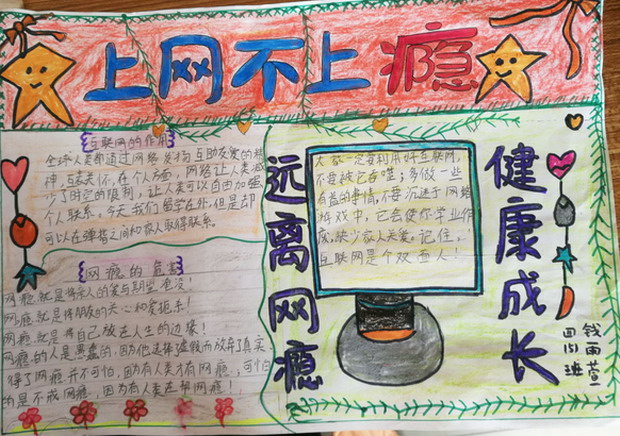 上网不上瘾
互联网的作用
全球人类都通过网络发扬互助友爱的精
神,互表关怀,在个人方面,网络让人类减
少了时空的限制,让人类可以自由加强
个人联系。今天我们留学在外,但是却
可以在弹指之间和家人取得联系。
网瘾的危害
网瘾就是将亲人的爱与期望淹没!
网瘾就是将朋友的关心和爱拒杀!
网瘾就是将自己放在人生的边缘!
网瘾的人是愚蠢的,因为他选择虚假而放弃了真实
得了网瘾并不可怕,因为有人类才有网瘾,可怕
的是不戒网瘾,因为有人类在帮网瘾!
远离网瘾
大家一定要利用好互联网,
不要被它吞噬;多做一些
有益的事情,不要沉迷于网络
游戏中,它会使你学业作
废,缺少家人关爱。记住,
互联网是个双面人!
健康成长
钱雨萱
四(5)班